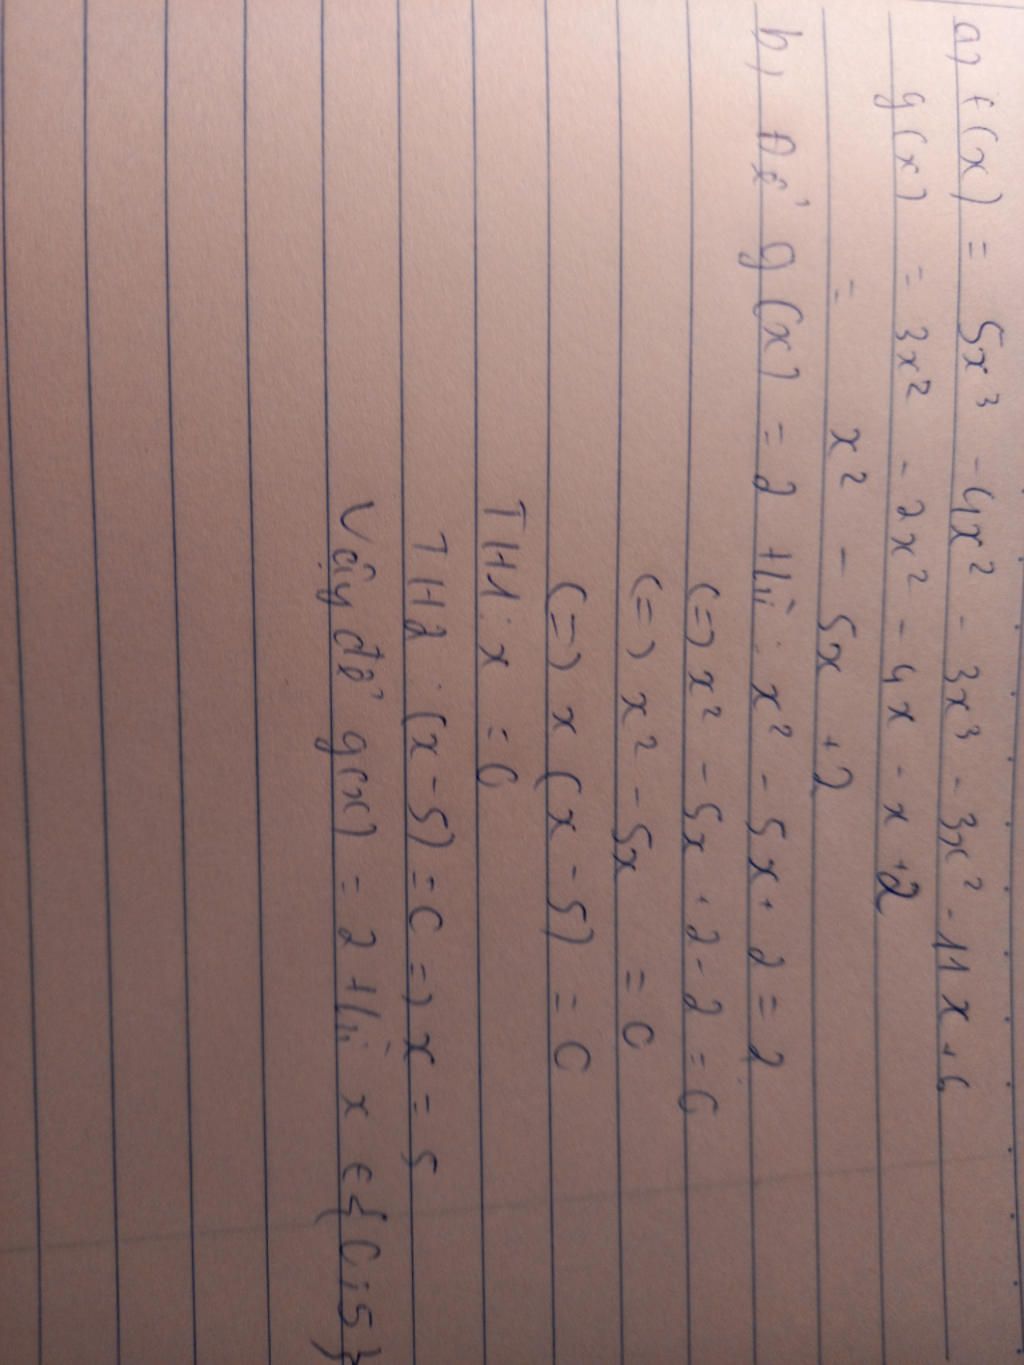 a) f(x) = 5x³ - 4x² - 3x³ - 3x² - 11x + 6
g(x) = 3x² - 2x² - 4x - x + 2
= x² - 5x + 2
b) Để g(x) = 2 thì: x² - 5x + 2 = 2
(=) x² - 5x + 2 - 2 = 0
(=) x² - 5x = 0
(=) x (x - 5) = 0
TH1: x = 0
TH2: (x - 5) = 0 =) x = 5
Vậy để g(x) = 2 thì x ∈ {0;5}